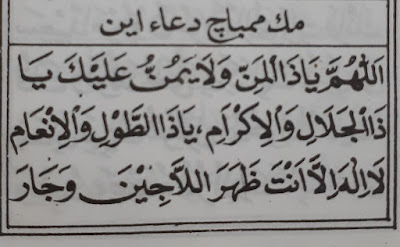 مك ممباچ دعاء اين
اَللّٰهُمَّ يَاذَا الْمَنِّ وَلَا يَمُنُّ عَلَيْكَ يَا
ذَاالْجَلَالِ وَالْاِكْرَامِ ، يَاذَا الطَّوْلِ وَالْاِنْعَامِ
لَا اِلٰهَ اِلَّا اَنْتَ ظَهَرَ اللَّاجِيْنَ وَجَارَ